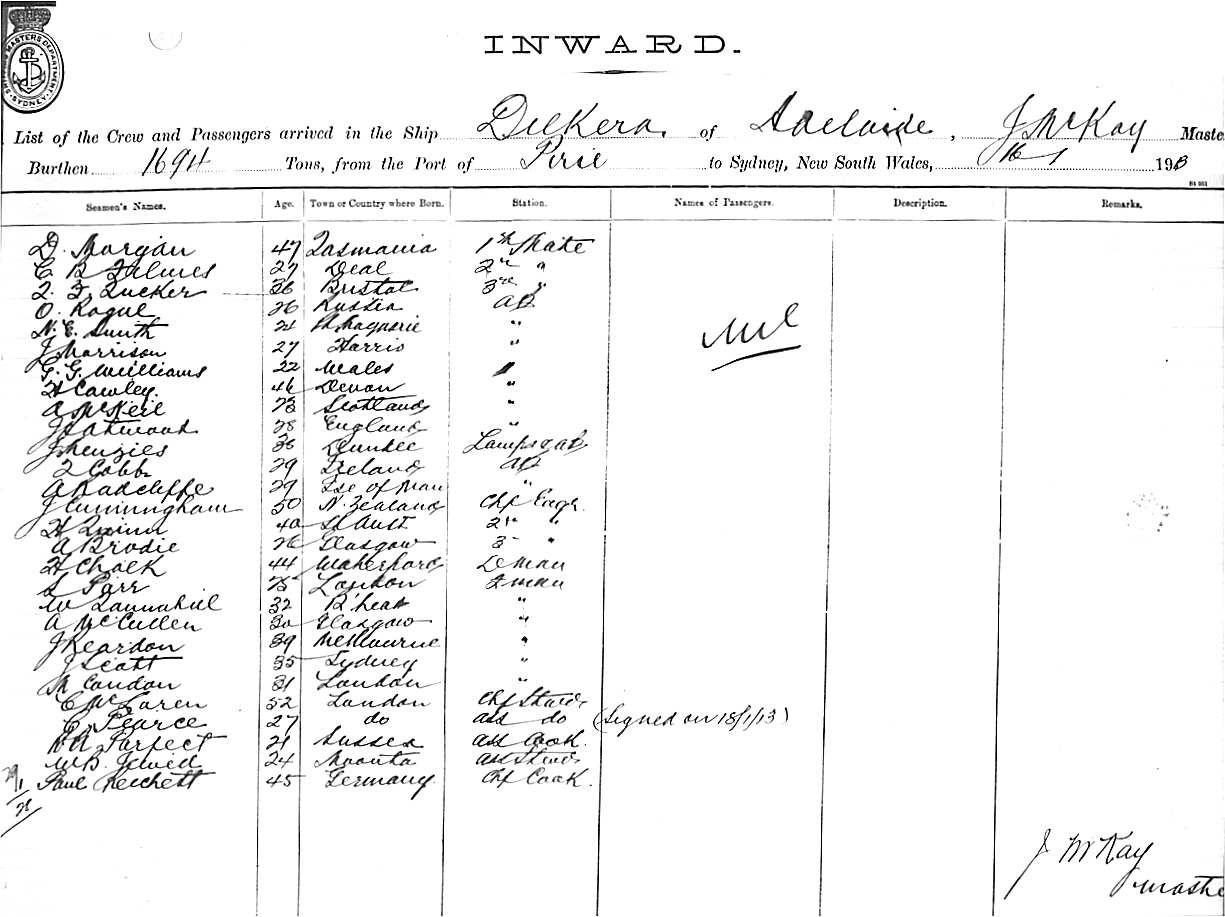 SHIPPING MASTERS DEPARTMENT. SYDNEY.
INWARD.
List of the Crew and Passengers arrived in the Ship of Adelaide, J McKay Maste
Burthen 1694 Tons, from the Port of Pirie to Sydney, New South Wales, 191
Seamen's Names. Age. Town or Country where Born. Station. Names of Passengers. Description. Remarks.
D. Morgan 47 Tasmania 1st Mate
C B 27 Deal 2nd "
Tucker 36 Bristol 3rd "
O. 26 Russia AB
N. E. Smith 21 Pt Maquarie "
Nil
J Morrison 27 Harris "
G. G. Williams 22 Wales "
H Cawley. 46 Devon "
A McNeil Scotland "
J 28 England "
J Menzies 36 Dundee Lamps & AB
Cobb 29 Ireland AB
A Radcliffe 29 Isle of Man "
J Cunningham 50 N. Zealand Chf Engr.
H Quinn 40 St Aust 2nd "
A Brodie 26 Glasgow 3 "
H Chalk 44 Waterford D man
S Parr London F man
W Tannahill 32 B'head "
A McCullen 30 Glasgow "
J Reardon 39 Melbourne "
J Scott 35 Sydney "
M Condon 31 London "
C McLaren 52 London Chf Stwd
C. Pearce 27 do ass do (Signed on 18/1/13)
Parfect 21 Sussex Ass Cook.
W B. 24 Moonta ass Stwd
Paul 45 Germany Chf Cook.
J McKay
maste